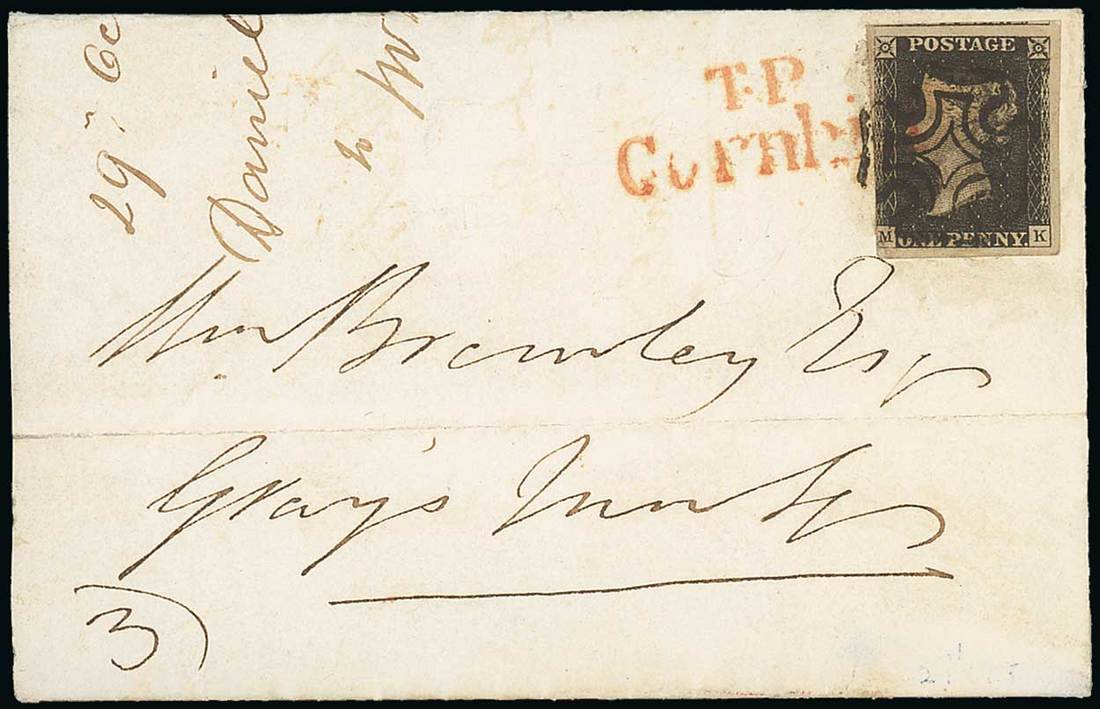 29th Oc
Daniel
to Mr
T.P
Cornhi
POSTAGE
M ONE PENNY K
Wm Bromley Esq
Gray's Inn Sq
3